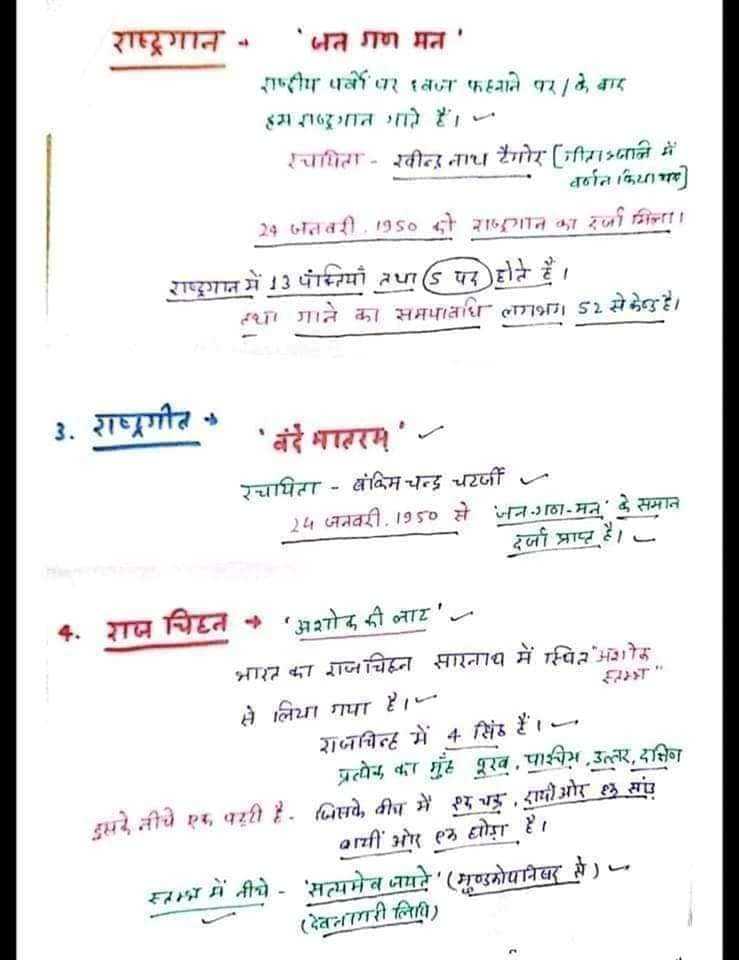 राष्ट्रगान → 'जन गण मन'
राष्ट्रीय पर्वों पर ध्वज फहराने पर / के बाद
हम राष्ट्रगान गाते हैं।
रचायिता - रवीन्द्र नाथ टैगोर [गीताञ्जलि में
वर्णन किया गया]
24 जनवरी, 1950 को राष्ट्रगान का दर्जा मिला।
राष्ट्रगान में 13 पंक्तियाँ तथा 5 पद होते हैं।
तथा गाने का समयावधि लगभग 52 सेकेण्ड है।
3. राष्ट्रगीत →
'वंदे मातरम्'
रचायिता - बंकिम चन्द्र चटर्जी
24 जनवरी, 1950 से 'जन-गण-मन' के समान
दर्जा प्राप्त है।
4. राज चिह्न → 'अशोक की लाट'
भारत का राजचिह्न सारनाथ में स्थित "अशोक
स्तम्भ"
से लिया गया है।
राजचिन्ह में 4 सिंह हैं।
प्रत्येक का मुँह पूरब, पाश्चिम, उत्तर, दक्षिण
इसके नीचे एक पट्टी है - जिसके बीच में एक चक्र, दायीं ओर एक सांड
बायीं ओर एक घोड़ा है।
स्तम्भ में नीचे - 'सत्यमेव जयते' (मुण्डकोपनिषद से)
(देवनागरी लिपि)